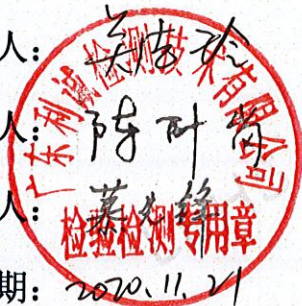 人：
人：陈叶青
人：
期：2020.11.21
广东利诚检测技术有限公司
检验检测专用章